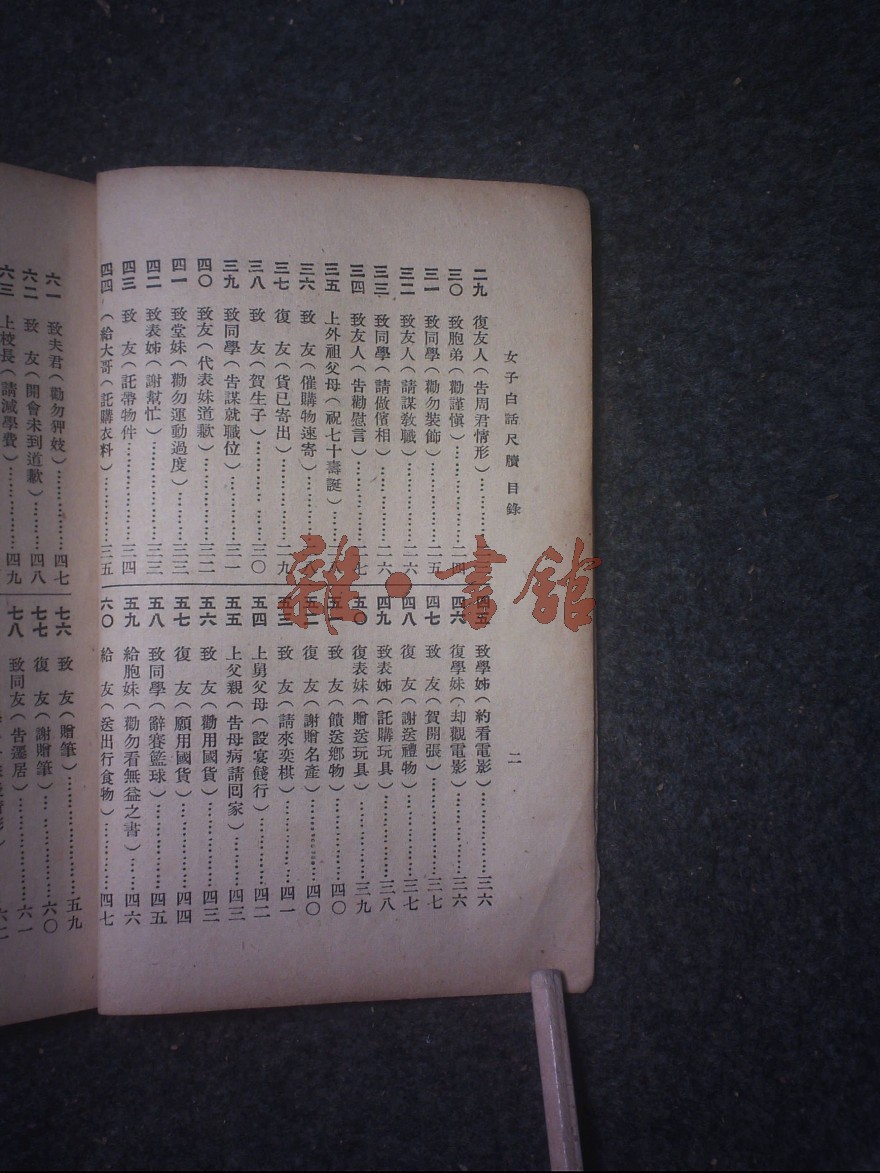 女子白話尺牘 目錄 二
二九 復友人(告周君情形)…………
三〇 致胞弟(勸謹慎)…………二四
三一 致同學(勸勿裝飾)…………二五
三二 致友人(請謀教職)…………二六
三三 致同學(請做儐相)…………二六
三四 致友人(告勸慰言)…………二七
三五 上外祖父母(祝七十壽誕)……
三六 致 友(催購物速寄)…………二八
三七 復 友(貨已寄出)…………二九
三八 致 友(賀生子)…………三〇
三九 致同學(告謀就職位)…………三一
四〇 致友(代表妹道歉)…………三二
四一 致堂妹(勸勿運動過度)…………三三
四二 致表姊(謝幫忙)…………三三
四三 致 友(託帶物件)…………三四
四四 (給大哥(託購衣料)…………三五
四五 致學姊(約看電影)…………三六
四六 復學妹(却觀電影)…………三六
四七 致 友(賀開張)…………三七
四八 復 友(謝送禮物)…………三七
四九 致表姊(託購玩具)…………三八
五〇 復表妹(贈送玩具)…………三九
五一 致 友(饋送鄉物)…………四〇
五二 復 友(謝贈名產)…………四〇
五三 致 友(請來奕棋)…………四一
五四 上舅父母(設宴餞行)…………四二
五五 上父親(告母病請回家)…………四三
五六 致 友(勸用國貨)…………四三
五七 復 友(願用國貨)…………四四
五八 致同學(辭賽籃球)…………四五
五九 給胞妹(勸勿看無益之書)…………四六
六〇 給 友(送出行食物)…………四七
六一 致夫君(勸勿狎妓)…………四七
六二 致 友(開會未到道歉)…………四八
六三 上校長(請減學費)…………四九
七六 致 友(贈筆)…………五九
七七 復 友(謝贈筆)…………六〇
七八 致同友(告遷居)…………六一
雜·書館